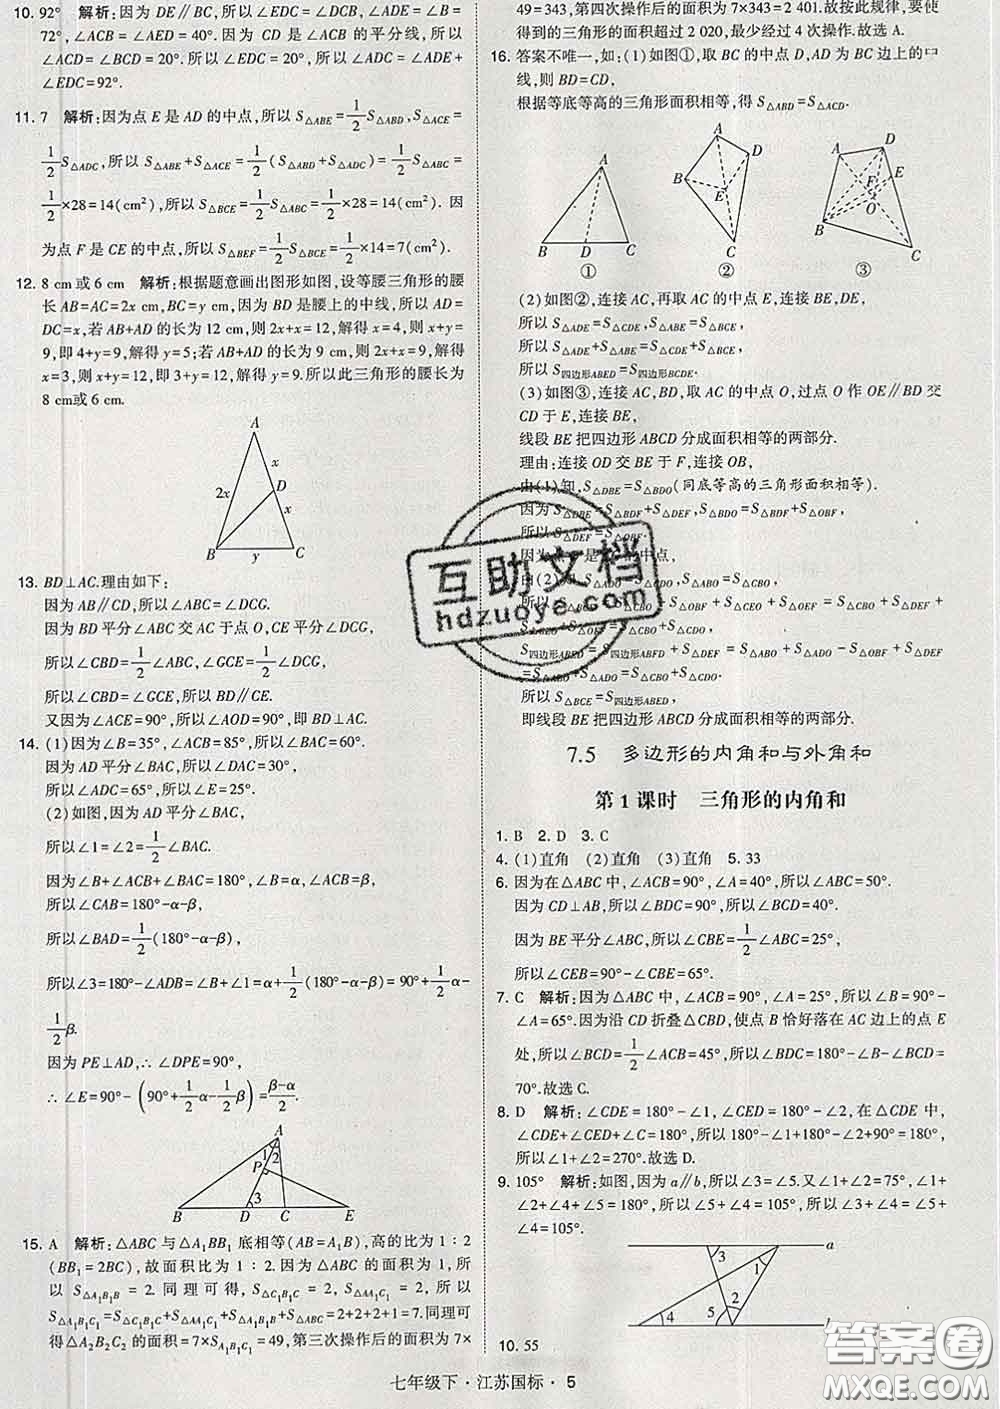 10. 92° 解析:因为 DE∥BC,所以∠EDC=∠DCB,∠ADE=∠B=
72°,∠ACB=∠AED=40°. 因为 CD 是∠ACB的平分线,所以
∠ACD=∠BCD=20°. 所以∠EDC=20°. 所以∠ADC=∠ADE+
∠EDC=92°.
11. 7 解析:因为点 E 是 AD 的中点,所以 S△ABE=1/2S△ABD,S△AEC=
1/2S△ADC,所以 S△ABE+S△ACE=1/2(S△ABD+S△ADC)=1/2S△ABC=
1/2×28=14(cm²),所以 S△BCE=1/2S△ABC=1/2×28=14(cm²). 因
为点 F 是 CE 的中点,所以 S△BEF=1/2S△BCE=1/2×14=7(cm²).
12. 8 cm或6 cm 解析:根据题意画出图形如图,设等腰三角形的腰
长 AB=AC=2x cm,BC=y cm,因为 BD 是腰上的中线,所以 AD=
DC=x,若 AB+AD 的长为 12 cm,则 2x+x=12,解得 x=4,则 x+y=
9,即 4+y=9,解得 y=5;若 AB+AD 的长为 9 cm,则 2x+x=9,解得
x=3,则 x+y=12,即 3+y=12,解得 y=9.所以此三角形的腰长为
8 cm或 6 cm.
A
x
2x
D
x
B
y
C
13. BD⊥AC.理由如下:
因为 AB∥CD,所以∠ABC=∠DCG.
因为 BD 平分∠ABC 交 AC 于点 O,CE 平分∠DCG,
所以∠CBD=1/2∠ABC,∠GCE=1/2∠DCG.
所以∠CBD=∠GCE,所以 BD∥CE.
又因为∠ACE=90°,所以∠AOD=90°,即 BD⊥AC.
14. (1)因为∠B=35°,∠ACB=85°,所以∠BAC=60°.
因为 AD 平分∠BAC,所以∠DAC=30°,
所以∠ADC=65°,所以∠E=25°.
(2)如图,因为 AD 平分∠BAC,
所以∠1=∠2=1/2∠BAC.
因为∠B+∠ACB+∠BAC=180°,∠B=α,∠ACB=β,
所以∠CAB=180°-α-β,
所以∠BAD=1/2(180°-α-β),
所以∠3=180°-∠ADB=∠B+∠1=α+1/2(180°-α-β)=90°+1/2α-
1/2β.
因为 PE⊥AD,∴∠DPE=90°,
∴∠E=90°-(90°+1/2α-1/2β)=(β-α)/2.
A
1
2
P
3
B D C E
15. A 解析:△ABC 与△A₁BB₁ 底相等(AB=A₁B),高的比为 1∶2
(BB₁=2BC),故面积比为 1∶2. 因为△ABC 的面积为 1,所
以 S△A₁B₁B=2.同理可得,S△C₁B₁C=2,S△AA₁C₁=2,所以
S△A₁B₁C₁=S△C₁B₁C+S△AA₁C₁+S△A₁B₁B+S△ABC=2+2+2+1=7.同理可
得△A₂B₂C₂ 的面积=7×S△A₁B₁C₁=49,第三次操作后的面积为 7×
49=343,第四次操作后的面积为 7×343=2 401.故按此规律,要使
得到的三角形的面积超过 2 020,最少经过 4 次操作.故选 A.
16. 答案不唯一,如:(1)如图①,取 BC 的中点 D,AD 为 BC 边上的中
线,则 BD=CD,
根据等底等高的三角形面积相等,得 S△ABD=S△ACD.
A
B D C
①
A
D
B
E
C
②
A
D
E
F
O
B
C
③
(2)如图②,连接 AC,再取 AC 的中点 E,连接 BE,DE,
所以 S△ADE=S△CDE,S△ABE=S△CBE,
所以 S△ADE+S△ABE=S△CDE+S△BCE,
所以 S四边形ABED=S四边形BCDE.
(3)如图③,连接 AC,BD,取 AC 的中点 O,过点 O 作 OE∥BD 交
CD 于 E,连接 BE,
线段 BE 把四边形 ABCD 分成面积相等的两部分.
理由:连接 OD 交 BE 于 F,连接 OB,
由(1)知,S△DBE=S△BDO(同底等高的三角形面积相等).
因为 S△DBE=S△BDF+S△DEF,S△BDO=S△BDF+S△OBF,
所以 S△DEF=S△OBF.
因为 中点,
由(2) S△ABO=S△CBO,
所以 S△OBF+S△CEO+S△OEF=S△CDE+
S△ABO
S四边形ABED=S四边形ABFD+S△DEF=S△ABO+S△ADO-S△OBF+S△DEF
=S△ABO+S△ADO=S△CBO+S△CDO,
所以 S△BCE=S四边形ABED,
即线段 BE 把四边形 ABCD 分成面积相等的两部分.
7.5 多边形的内角和与外角和
第 1 课时 三角形的内角和
1. B 2. D 3. C
4. (1)直角 (2)直角 (3)直角 5. 33
6. 因为在△ABC 中,∠ACB=90°,∠A=40°,所以∠ABC=50°.
因为 CD⊥AB,所以∠BDC=90°,所以∠BCD=40°.
因为 BE平分∠ABC,所以∠CBE=1/2∠ABC=25°,
所以∠CEB=90°-∠CBE=65°.
7. C 解析:因为△ABC 中,∠ACB=90°,∠A=25°,所以∠B=90°-
∠A=65°.因为沿 CD 折叠△CBD,使点 B 恰好落在 AC 边上的点 E
处,所以∠BCD=1/2∠ACB=45°,所以∠BDC=180°-∠B-∠BCD=
70°.故选 C.
8. D 解析:∠CDE=180°-∠1,∠CED=180°-∠2,在△CDE 中,
∠CDE+∠CED+∠C=180°,所以180°-∠1+180°-∠2+90°=
180°,所以∠1+∠2=270°.故选 D.
9. 105° 解析:如图,因为 a∥b,所以∠3=∠5.又∠1+∠2=75°,∠1+
∠2+∠4+∠5=180°,所以∠4+∠5=105°,所以∠3+∠4=∠5+
∠4=105°.
a
3
1
2
5
4
b
10. 55
互助文档
hdzuoye.com
答案圈
MXQE.COM
七年级下·江苏国标·5